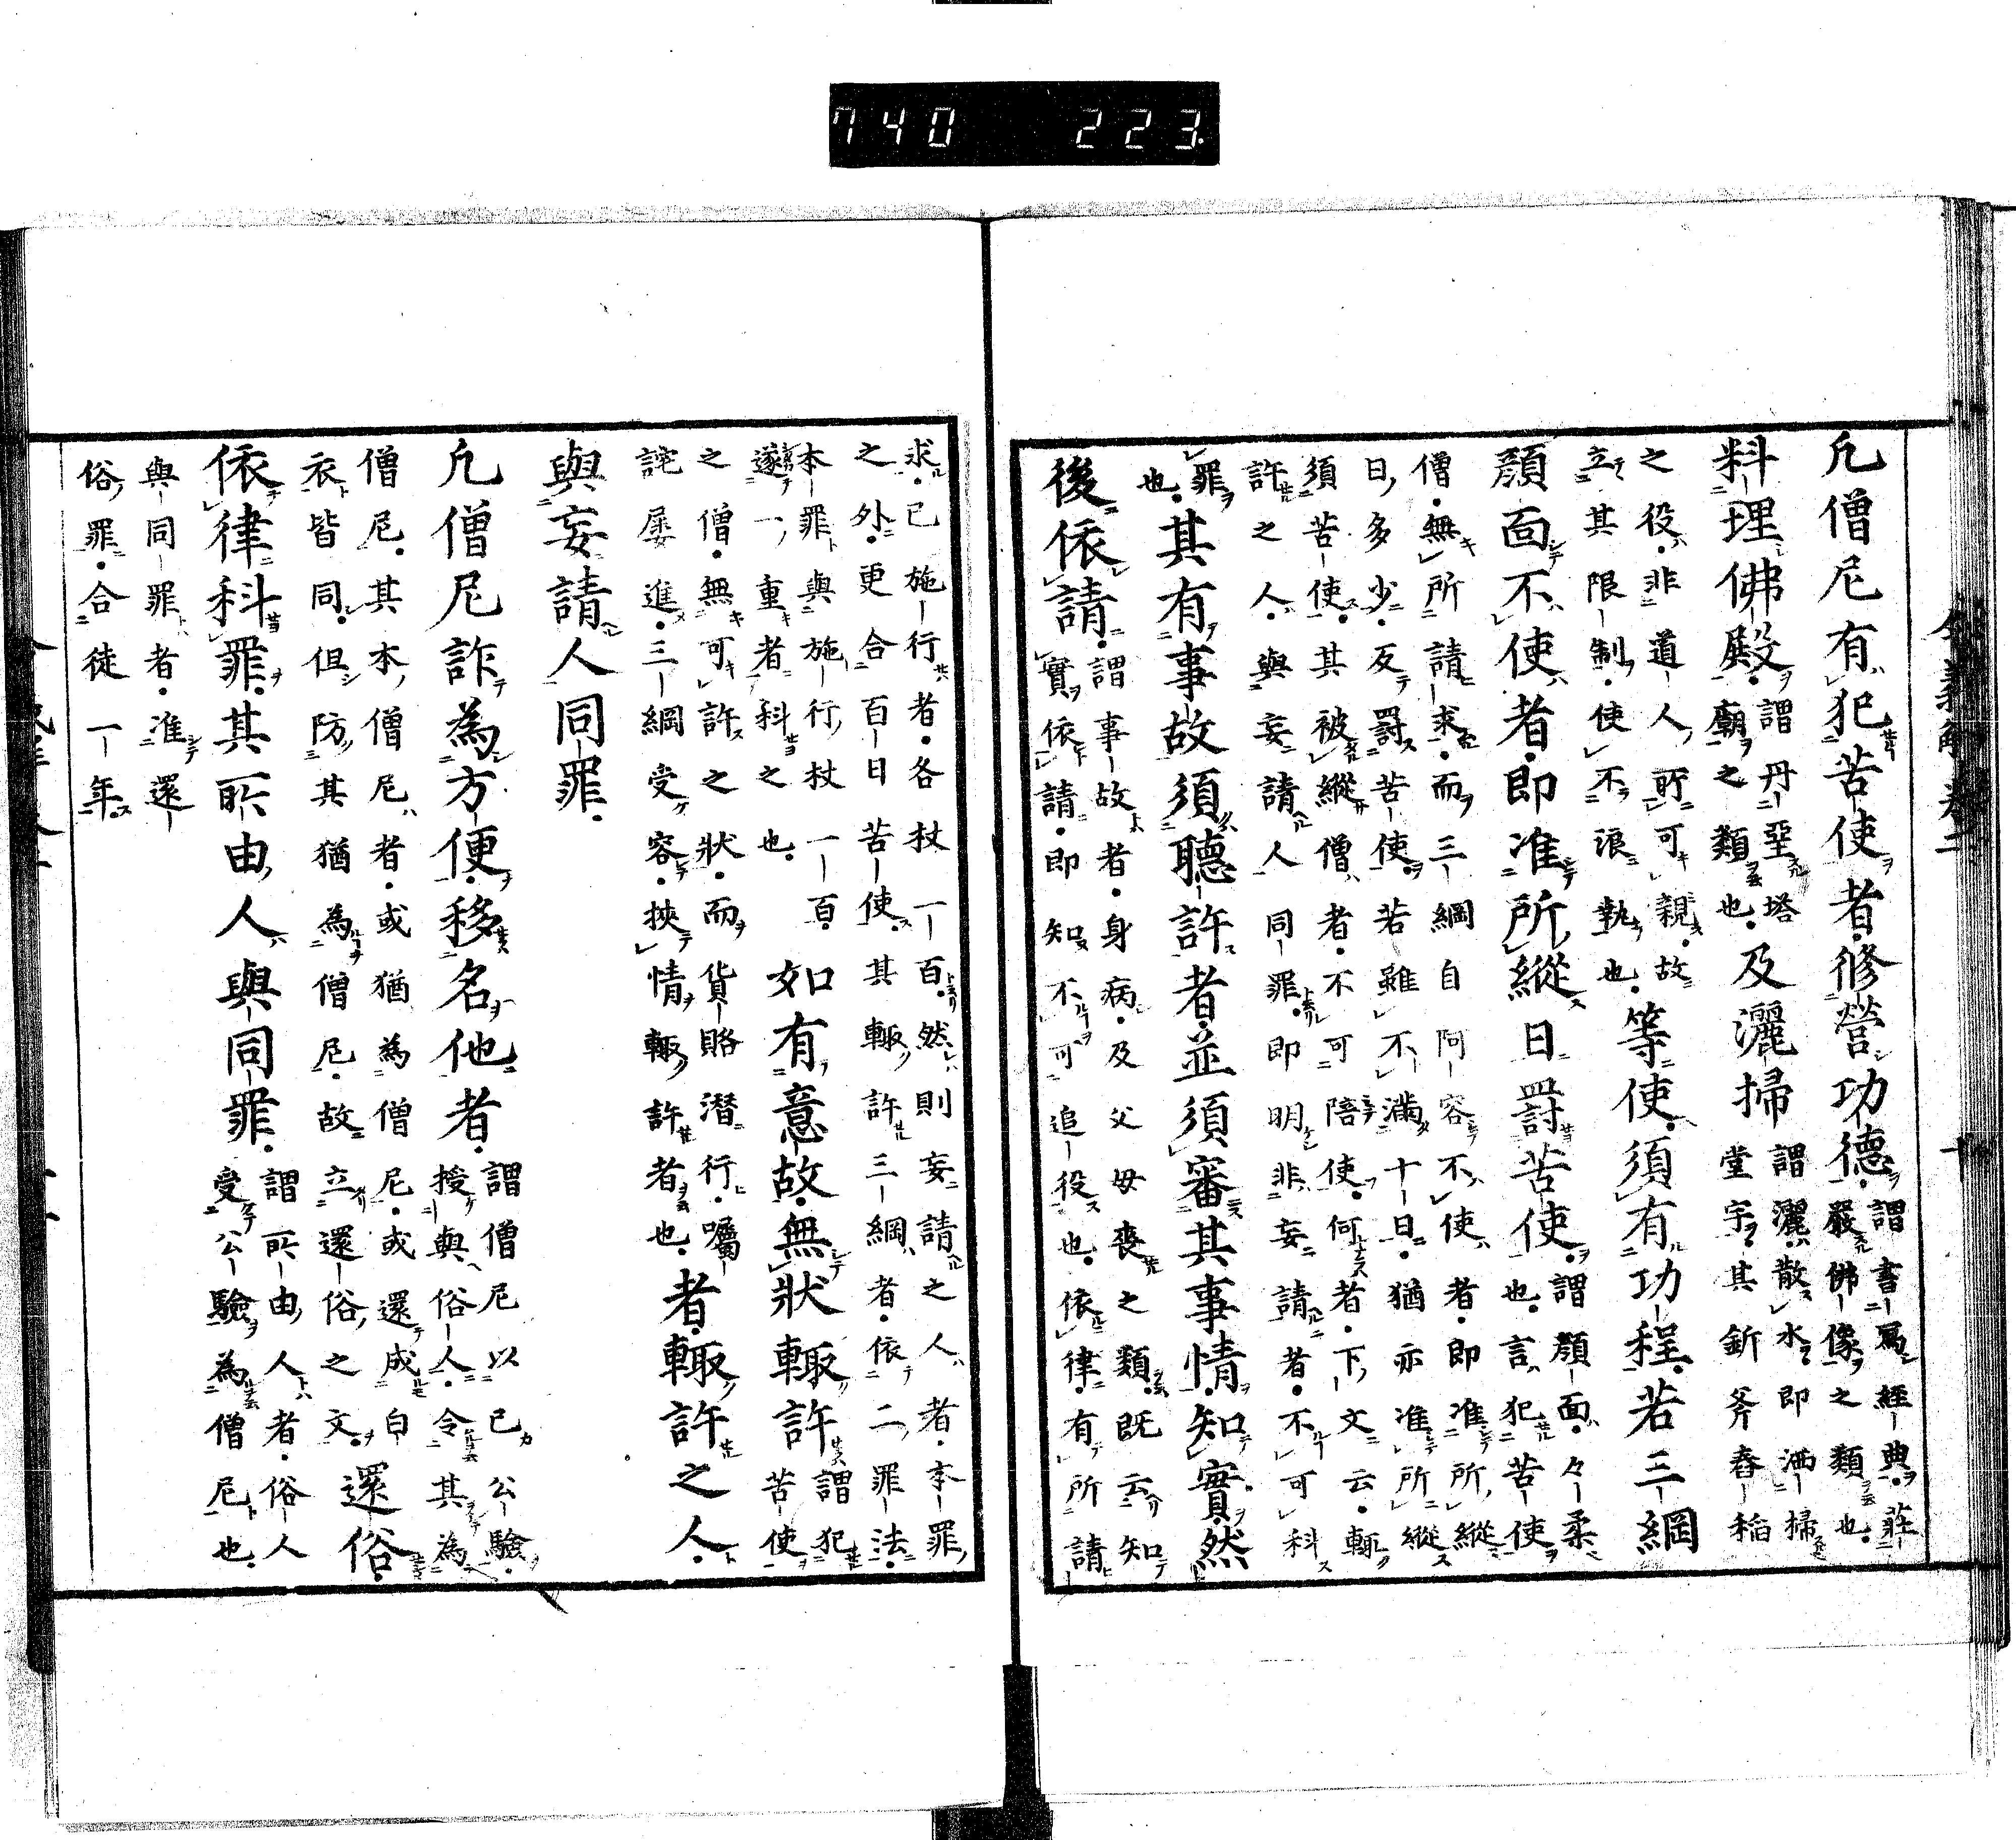 740 223
凢僧尼有犯苦使者修營功德謂書寫經典莊
嚴佛像之類也
料理佛殿謂丹堊塔
廟之類也及灑掃謂灑散水即洒掃
堂宇其斫斧舂稻
之役非道人所可親故
立其限制使不浪執也等使須有功程若三綱
顏面不使者即准所縱日罸苦使謂顏面々柔
也言犯苦使
僧無所請求而三綱自阿容不使者即准所縱
日多少反罸苦使若雖不滿十日猶亦准所縱
須苦使其被縱僧者不可陪使何者下文云輙
許之人與妄請人同罪即明非妄請者不可科
罪
也其有事故須聽許者並須審其事情知實然
後依請謂事故者身病及父母喪之類既云知
實依請即知不可追役也依律有所請
求已施行者各杖一百然則妄請之人者本罪
之外更合百日苦使其輙許三綱者依二罪法
本罪與施行杖一百
遂一重者科之也如有意故無狀輙許謂犯
苦使
之僧無可許之狀而貨賂潜行囑
詫屡進三綱受容挾情輙許者也者輙許之人
與妄請人同罪
凢僧尼詐為方便移名他者謂僧尼以己公驗
授與俗人令其為
僧尼其本僧尼者或猶為僧尼或還成白
衣皆同但防其猶為僧尼故立還俗之文還俗
依律科罪其所由人與同罪謂所由人者俗人
受公驗為僧尼也
與同罪者准還
俗罪合徒一年